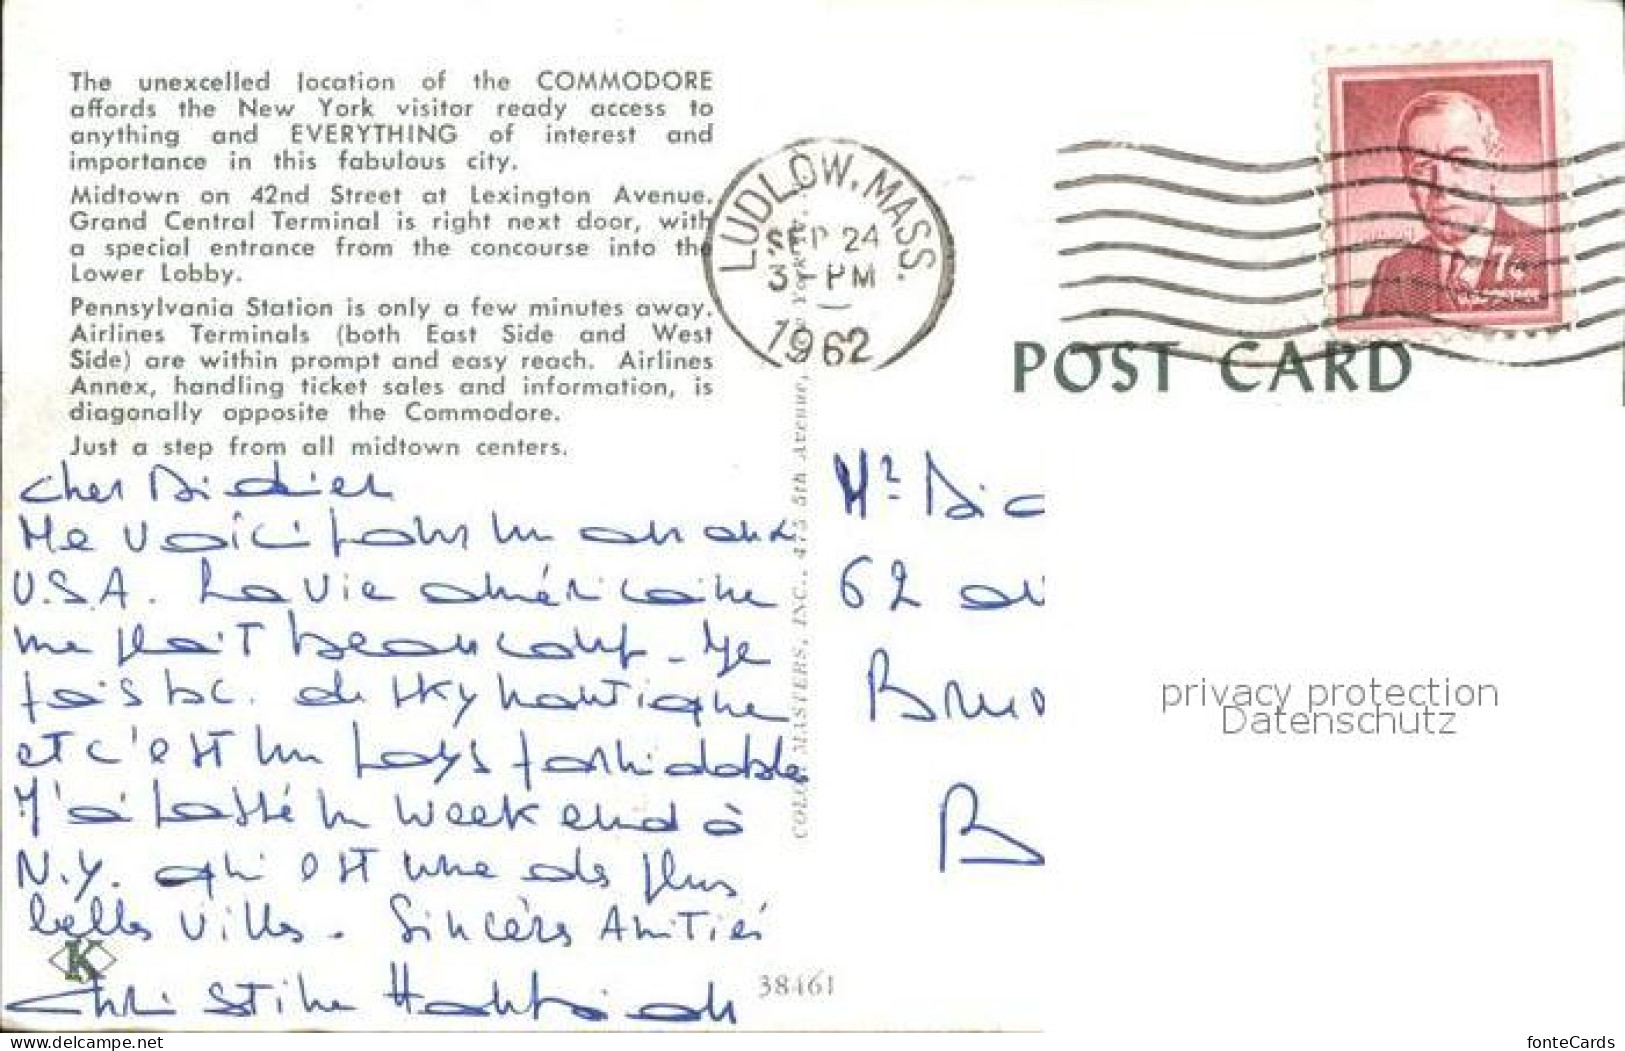 The unexcelled location of the COMMODORE
affords the New York visitor ready access to
anything and EVERYTHING of interest and
importance in this fabulous city.
Midtown on 42nd Street at Lexington Avenue.
Grand Central Terminal is right next door, with
a special entrance from the concourse into the
Lower Lobby.
Pennsylvania Station is only a few minutes away.
Airlines Terminals (both East Side and West
Side) are within prompt and easy reach. Airlines
Annex, handling ticket sales and information, is
diagonally opposite the Commodore.
Just a step from all midtown centers.
LUDLOW, MASS.
SEP 24
3 - PM
1962
POST CARD
Cher Didier
Me voici pour un an aux
U.S.A. La vie américaine
me plait beaucoup - Je
fais bc. de sky nautique
et c'est un pays formidable
J'ai passé un week end à
N.Y. qui est une des plus
belles villes. Sincères Amitiés
Christine
K
38461
COLOR MASTERS, INC., 415 5th Avenue,
Mr Di
62 a
Bru
B
privacy protection
Datenschutz
www.delcampe.net
fonteCards